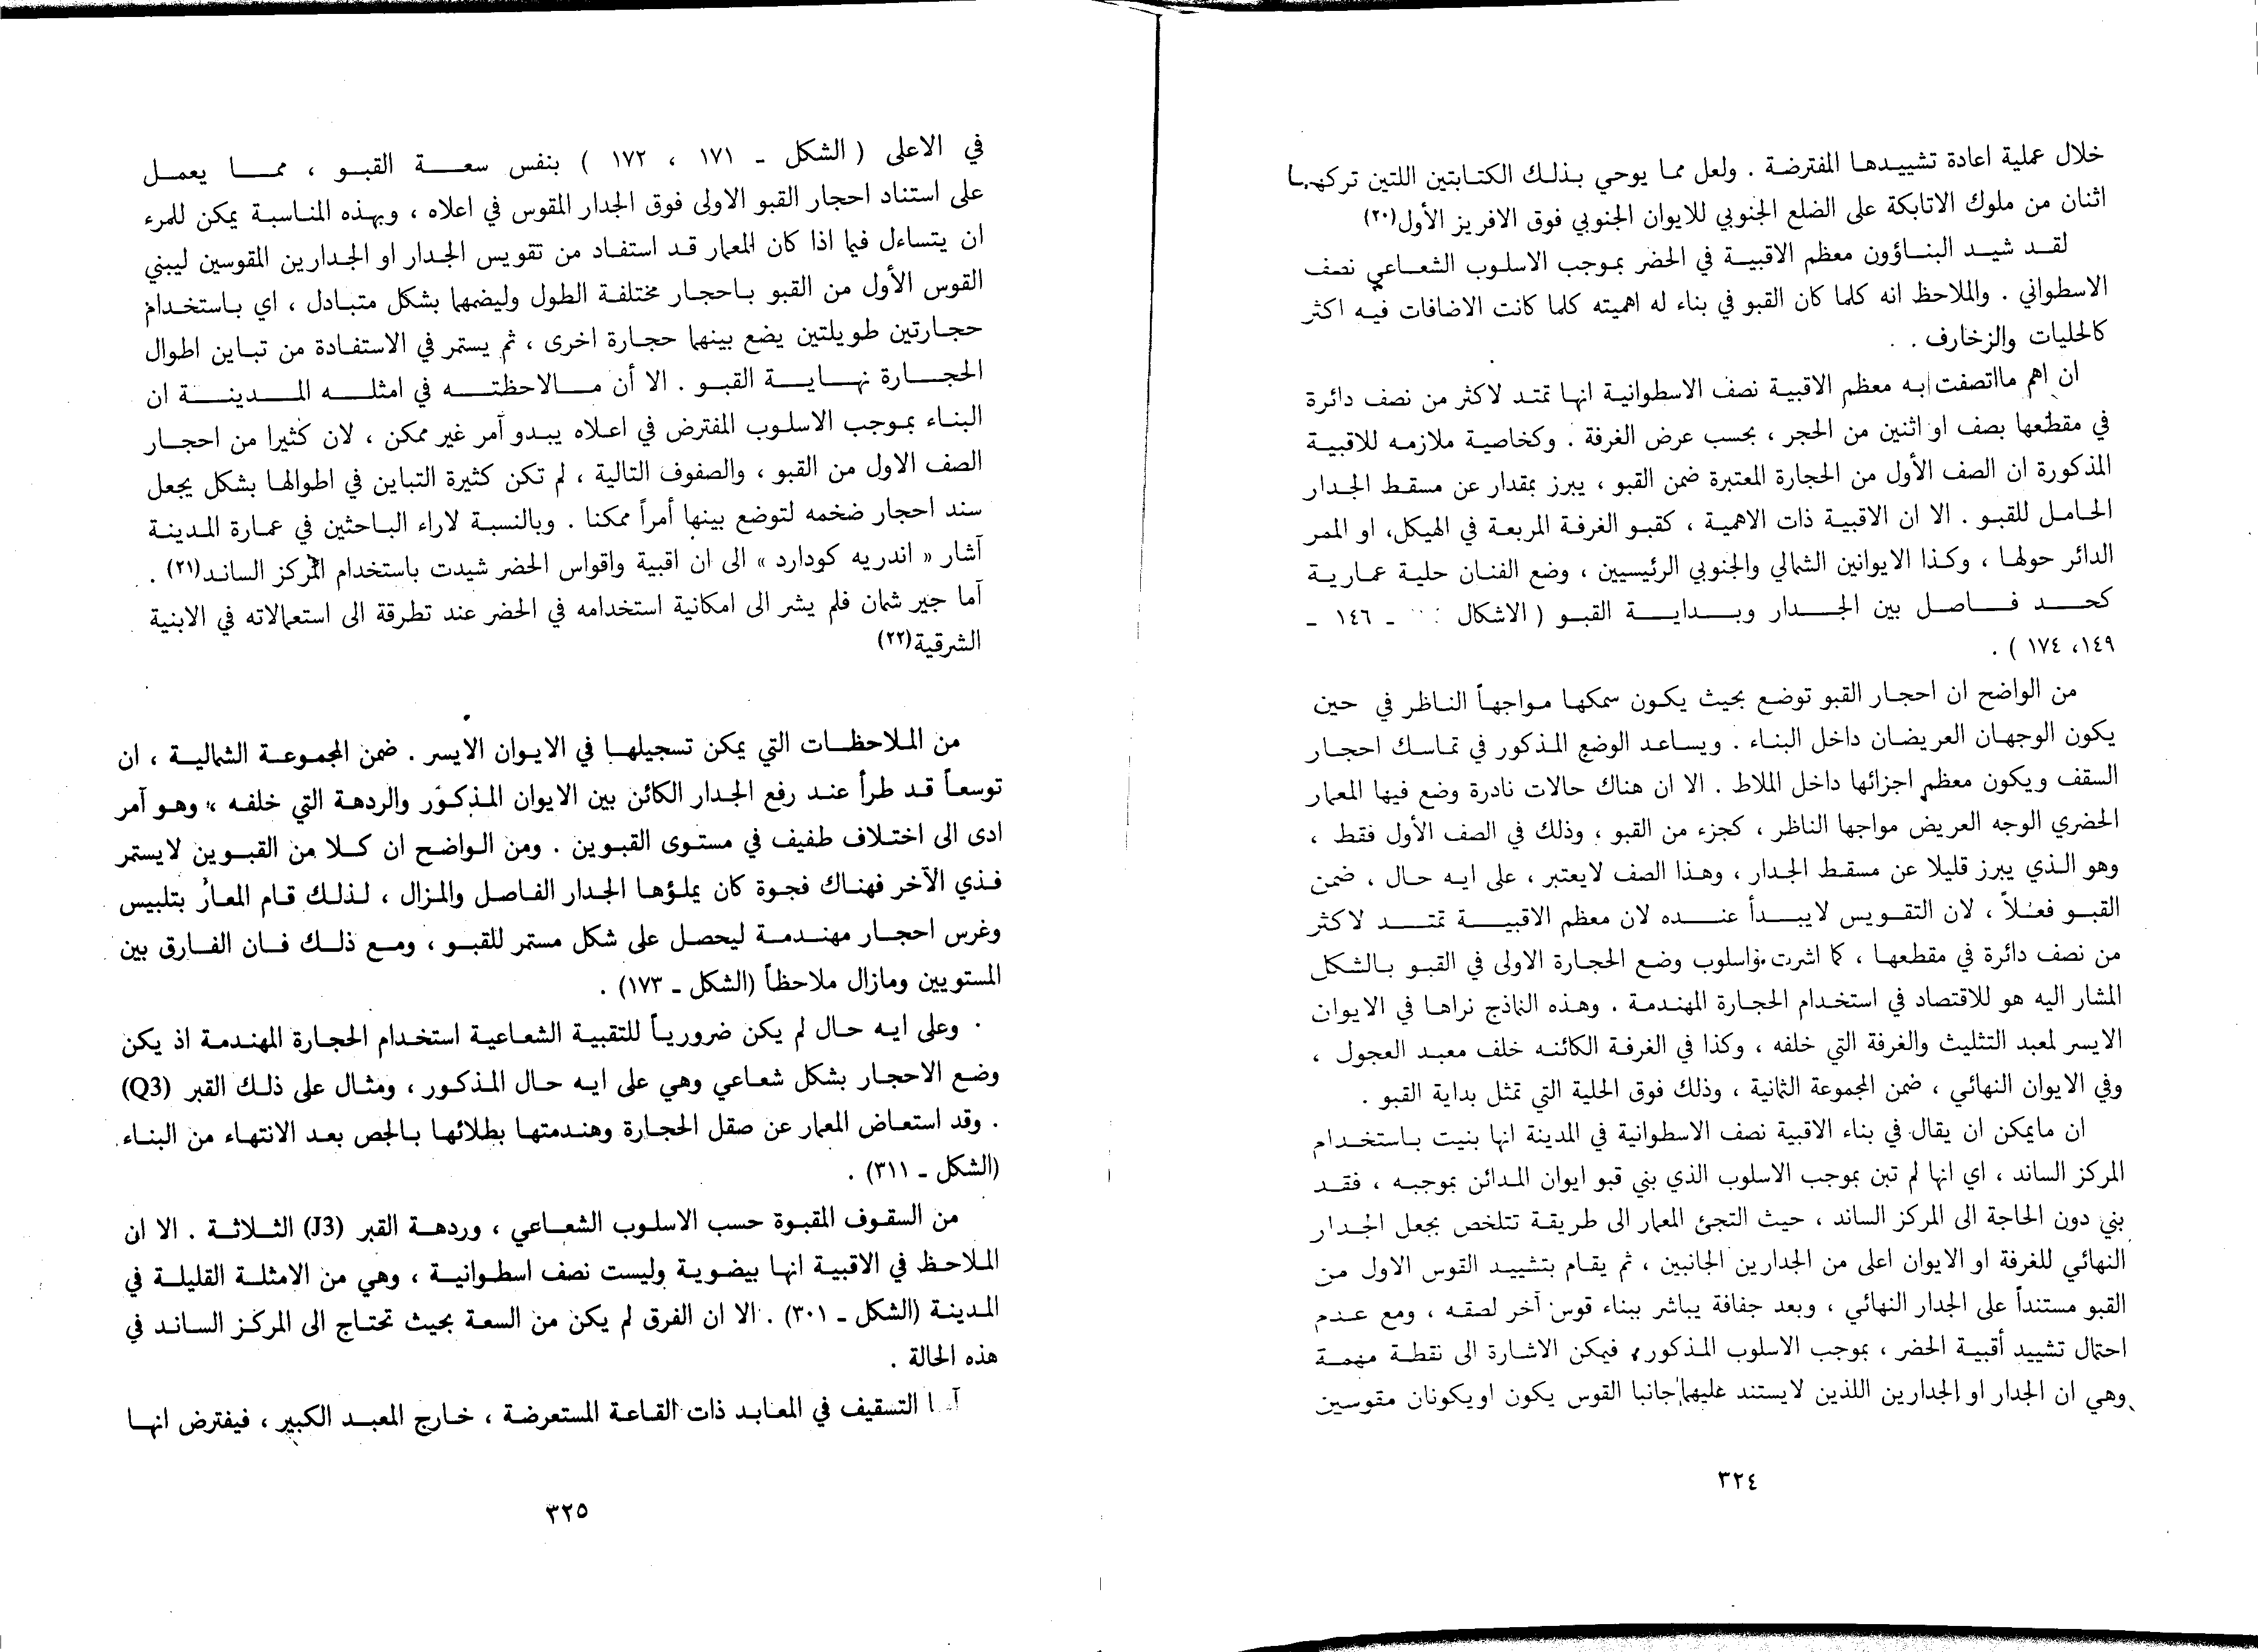 خلال عملية اعادة تشييدها المفترضة . ولعل مما يوحي بذلك الكتابتين اللتين تركهما
اثنان من ملوك الاتابكة على الضلع الجنوبي للايوان الجنوبي فوق الافريز الأول(٢٠)
لقد شيد البناؤون معظم الاقبية في الحضر بموجب الاسلوب الشعاعي نصف
الاسطواني . والملاحظ انه كلما كان القبو في بناء له اهميته كلما كانت الاضافات فيه اكثر
كالحليات والزخارف .
ان اهم مااتصفت به معظم الاقبية نصف الاسطوانية انها تمتد لاكثر من نصف دائرة
في مقطعها بصف او اثنين من الحجر ، بحسب عرض الغرفة . وكخاصية ملازمه للاقبية
المذكورة ان الصف الأول من الحجارة المعتبرة ضمن القبو ، يبرز بمقدار عن مسقط الجدار
الحامل للقبو . الا ان الاقبية ذات الاهمية ، كقبو الغرفة المربعة في الهيكل، او الممر
الدائر حولها ، وكذا الايوانين الشمالي والجنوبي الرئيسيين ، وضع الفنان حلية عمارية
كحد فاصل بين الجدار وبداية القبو ( الاشكال : ـ ١٤٦ ـ
١٤٩، ١٧٤ ) .
من الواضح ان احجار القبو توضع بحيث يكون سمكها مواجهاً الناظر في حين
يكون الوجهان العريضان داخل البناء . ويساعد الوضع المذكور في تماسك احجار
السقف ويكون معظم اجزائها داخل الملاط . الا ان هناك حالات نادرة وضع فيها المعمار
الحضري الوجه العريض مواجها الناظر ، كجزء من القبو ، وذلك في الصف الأول فقط ،
وهو الذي يبرز قليلا عن مسقط الجدار ، وهذا الصف لايعتبر ، على ايه حال ، ضمن
القبو فعلاً ، لان التقويس لايبدأ عنده لان معظم الاقبية تمتد لاكثر
من نصف دائرة في مقطعها ، كما اشرت واسلوب وضع الحجارة الاولى في القبو بالشكل
المشار اليه هو للاقتصاد في استخدام الحجارة المهندمة . وهذه النماذج نراها في الايوان
الايسر لمعبد التثليث والغرفة التي خلفه ، وكذا في الغرفة الكائنه خلف معبد العجول ،
وفي الايوان النهائي ، ضمن المجموعة الثانية ، وذلك فوق الحلية التي تمثل بداية القبو .
ان مايمكن ان يقال في بناء الاقبية نصف الاسطوانية في المدينة انها بنيت باستخدام
المركز الساند ، اي انها لم تبن بموجب الاسلوب الذي بني قبو ايوان المدائن بموجبه ، فقد
بني دون الحاجة الى المركز الساند ، حيث التجئ المعمار الى طريقة تتلخص بجعل الجدار
النهائي للغرفة او الايوان اعلى من الجدارين الجانبين ، ثم يقام بتشييد القوس الاول من
القبو مستنداً على الجدار النهائي ، وبعد جفافة يباشر ببناء قوس آخر لصقه ، ومع عدم
احتمال تشييد أقبية الحضر ، بموجب الاسلوب المذكور، فيمكن الاشارة الى نقطة مهمة
وهي ان الجدار او الجدارين اللذين لايستند عليهما جانبا القوس يكون اويكونان مقوسين
٣٢٤
في الاعلى ( الشكل ـ ١٧١ ، ١٧٢ ) بنفس سعة القبو ، مما يعمل
على استناد احجار القبو الاولى فوق الجدار المقوس في اعلاه ، وبهذه المناسبة يمكن للمرء
ان يتساءل فيما اذا كان المعمار قد استفاد من تقويس الجدار او الجدارين المقوسين ليبني
القوس الأول من القبو باحجار مختلفة الطول وليضمها بشكل متبادل ، اي باستخدام
حجارتين طويلتين يضع بينهما حجارة اخرى ، ثم يستمر في الاستفادة من تباين اطوال
الحجارة نهاية القبو . الا أن مالاحظته في امثله المدينة ان
البناء بموجب الاسلوب المفترض في اعلاه يبدو آمر غير ممكن ، لان كثيرا من احجار
الصف الاول من القبو ، والصفوف التالية ، لم تكن كثيرة التباين في اطوالها بشكل يجعل
سند احجار ضخمه لتوضع بينها أمراً ممكنا . وبالنسبة لاراء الباحثين في عمارة المدينة
آشار « اندريه كودارد » الى ان اقبية واقواس الحضر شيدت باستخدام المركز الساند(٢١) .
آما جير شمان فلم يشر الى امكانية استخدامه في الحضر عند تطرقة الى استعمالاته في الابنية
الشرقية(٢٢)
من الملاحظات التي يمكن تسجيلها في الايوان الايسر . ضمن المجموعة الشمالية ، ان
توسعاً قد طرأ عند رفع الجدار الكائن بين الايوان المذكور والردهة التي خلفه ، وهو آمر
ادى الى اختلاف طفيف في مستوى القبوين . ومن الواضح ان كلا من القبوين لايستمر
فذي الآخر فهناك فجوة كان يملؤها الجدار الفاصل والمزال ، لذلك قام المعمار بتلبيس
وغرس احجار مهندمة ليحصل على شكل مستمر للقبو ، ومع ذلك فان الفارق بين
المستويين ومازال ملاحظاً (الشكل ـ ١٧٣) .
وعلى ايه حال لم يكن ضرورياً للتقبية الشعاعية استخدام الحجارة المهندمة اذ يكن
وضع الاحجار بشكل شعاعي وهي على ايه حال المذكور ، ومثال على ذلك القبر (Q3)
. وقد استعاض المعمار عن صقل الحجارة وهندمتها بطلائها بالجص بعد الانتهاء من البناء
(الشكل ـ ٣١١) .
من السقوف المقبوة حسب الاسلوب الشعاعي ، وردهة القبر (J3) الثلاثة . الا ان
الملاحظ في الاقبية انها بيضوية وليست نصف اسطوانية ، وهي من الامثلة القليلة في
المدينة (الشكل ـ ٣٠١) . الا ان الفرق لم يكن من السعة بحيث تحتاج الى المركز الساند في
هذه الحالة .
آما التسقيف في المعابد ذات القاعة المستعرضة ، خارج المعبد الكبير ، فيفترض انها
٣٢٥